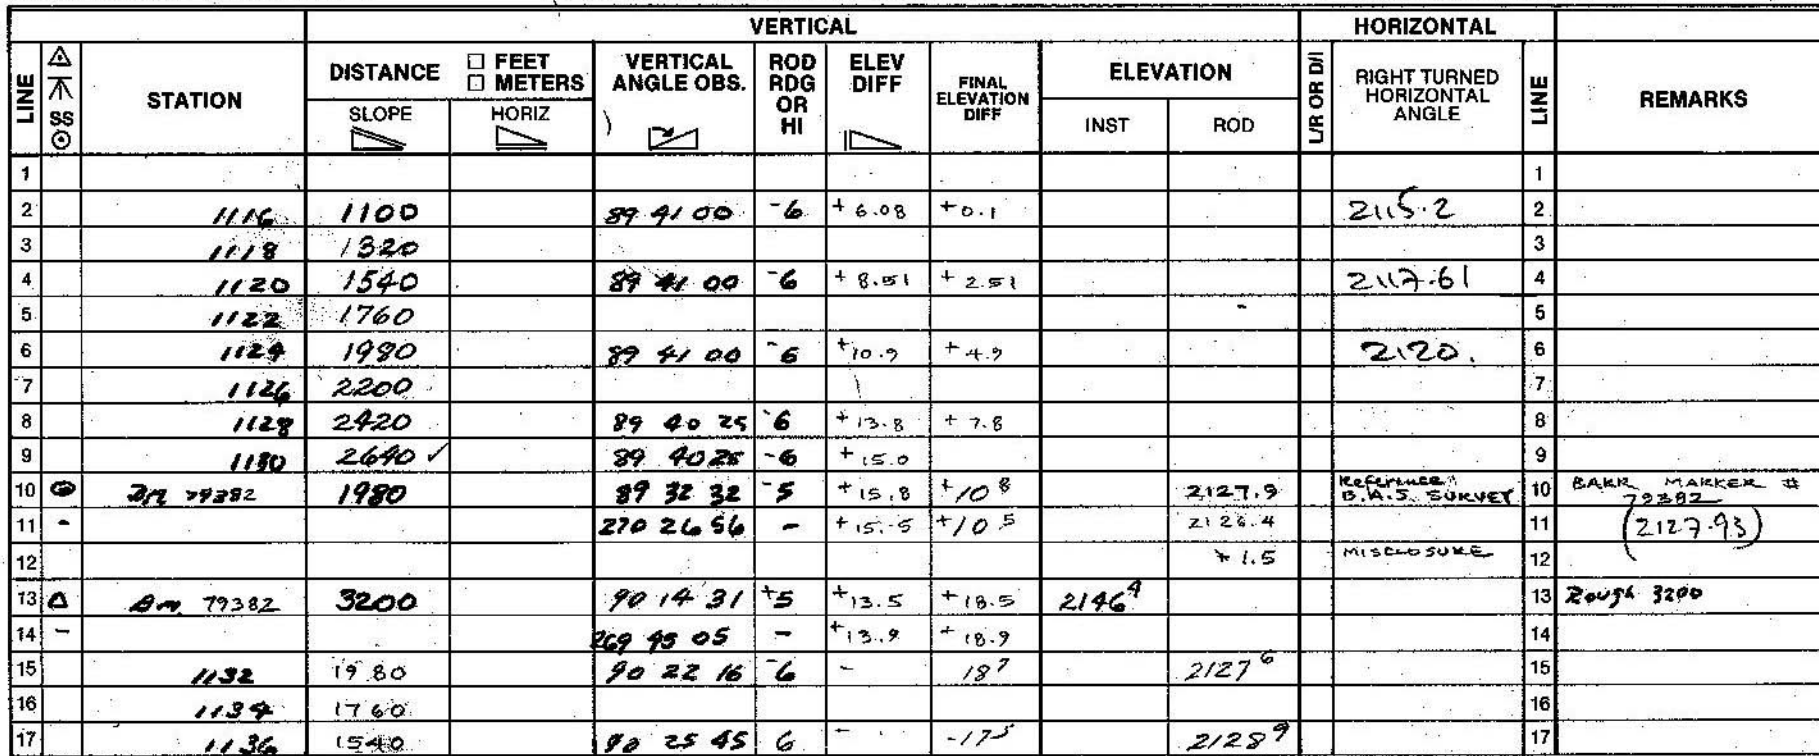 VERTICAL HORIZONTAL
LINE SS STATION DISTANCE □ FEET □ METERS SLOPE HORIZ VERTICAL ANGLE OBS. ROD RDG OR HI ELEV DIFF FINAL ELEVATION DIFF ELEVATION INST ROD L/R OR D/I RIGHT TURNED HORIZONTAL ANGLE LINE REMARKS
1 1
2 1116 1100 89 41 00 -6 +6.08 +0.1 2115.2 2
3 1118 1320 3
4 1120 1540 89 41 00 -6 +8.51 +2.51 2117.61 4
5 1122 1760 5
6 1124 1980 89 41 00 -6 +10.9 +4.9 2120. 6
7 1126 2200 7
8 1128 2420 89 40 25 -6 +13.8 +7.8 8
9 1130 2640 ✓ 89 40 25 -6 +15.0 9
10 BM 79382 1980 89 32 32 -5 +15.8 +10 8 2127.9 Reference: B.A.S. SURVEY 10 BAKR MARKER # 79382
11 - 270 26 56 - +15.5 +10 5 2126.4 11 (2127.93)
12 +1.5 MISCLOSURE 12
13 △ BM 79382 3200 90 14 31 +5 +13.5 +18.5 2146 4 13 Rough 3200
14 - 269 45 05 - +13.9 +18.9 14
15 1132 1980 90 22 16 -6 - 18 7 2127 6 15
16 1134 1760 16
17 1136 1540 90 25 45 6 - -17 5 2128 9 17